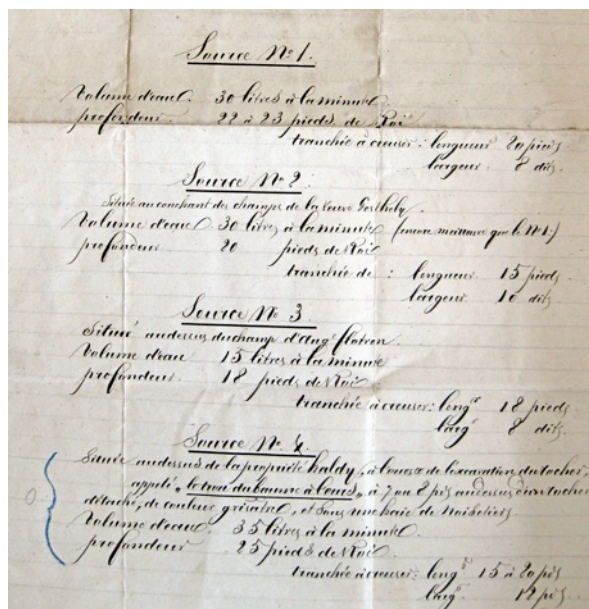 Source No 1.
Volume d'eau. 30 litres à la minute
profondeur. 22 à 23 pieds de Roi
tranchée à creuser: longueur 20 pieds
largeur. 8 dits.
Source No 2
Située au couchant des champs de la veuve
Volume d'eau. 30 litres à la minute (encore meilleure que le No 1.)
profondeur 20 pieds de Roi
tranchée de : longueur. 15 pieds
largeur 10 dits
Source No 3.
Situé audessus du champ d'Augte
Volume d'eau 15 litres à la minute
profondeur. 18 pieds de Roi
tranchée à creuser: longr 18 pieds
largr 8 dits.
Source No 4.
Située audessus de la propriété haldy, à l'ouest de l'excavation du rocher,
appelé „ à l'ours„ à 7 ou 8 pds audessus d'un rocher
détaché, de couleur grisâtre, et sous une haie de Noisetiers
Volume d'eau. 35 litres à la minute
profondeur 25 pieds de Roi
tranchée à creuser: longr 15 à 20 pds
largr 12 pds.